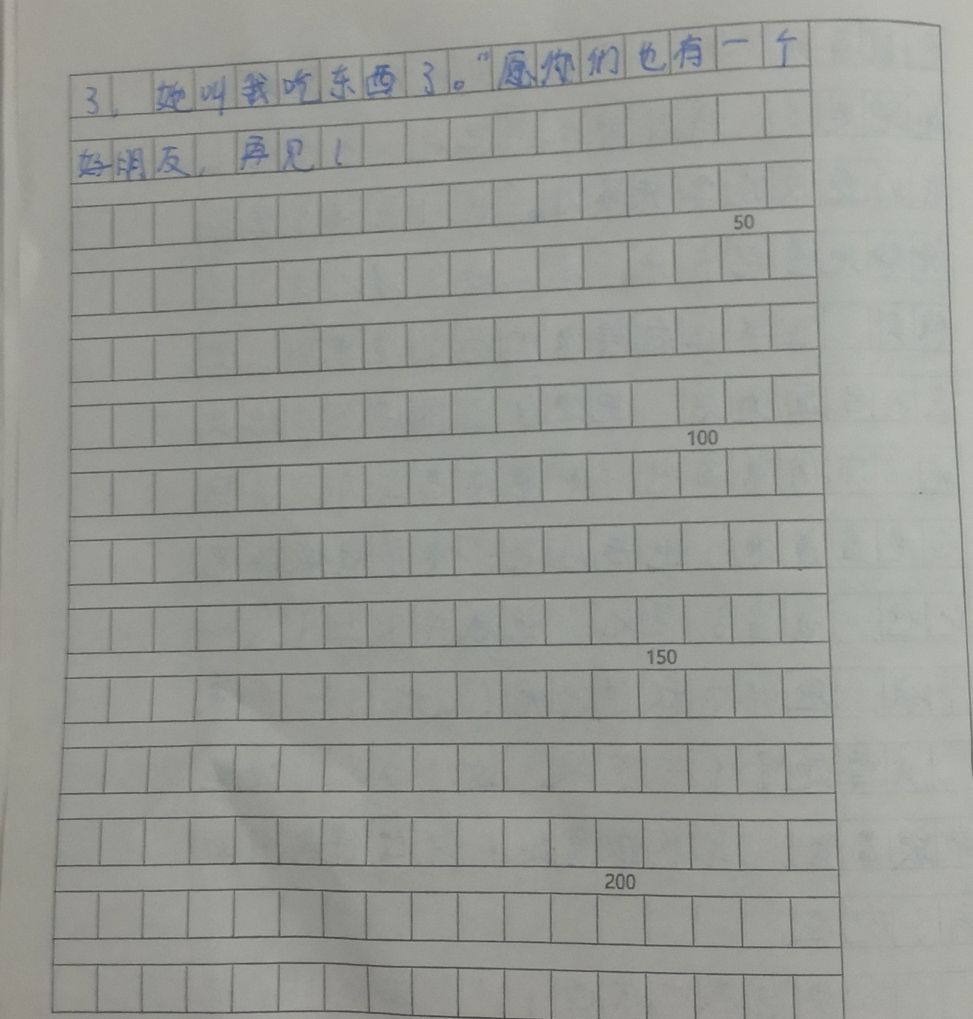 了，她叫我吃东西了。”愿你们也有一个
好朋友，再见！
50
100
150
200